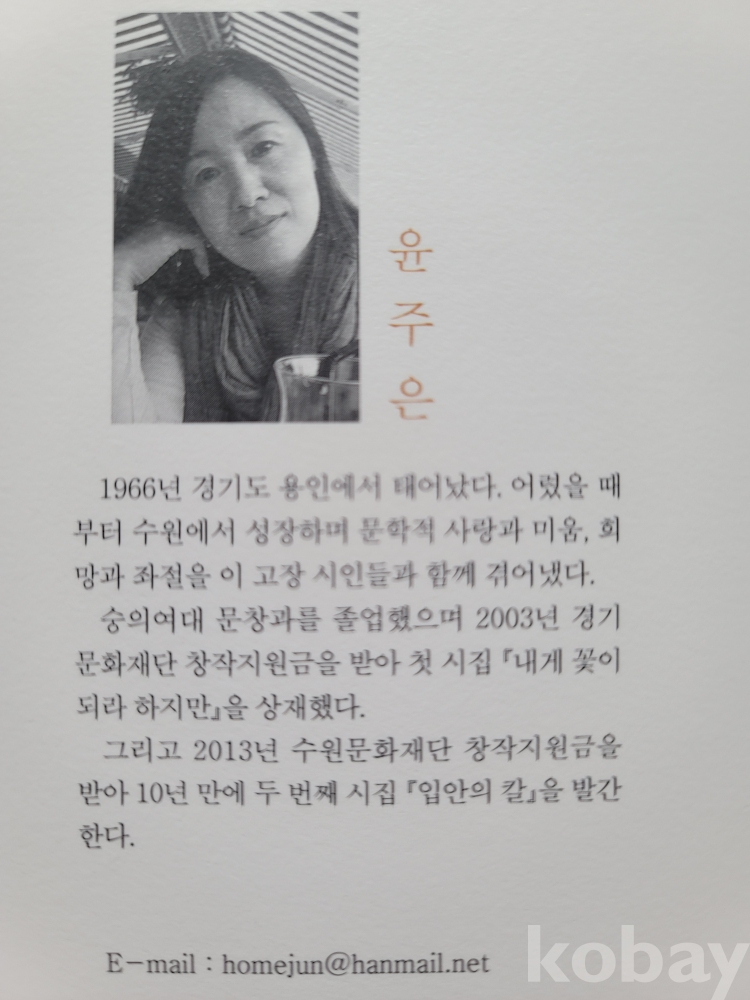 윤
주
은
1966년 경기도 용인에서 태어났다. 어렸을 때
부터 수원에서 성장하며 문학적 사랑과 미움, 희
망과 좌절을 이 고장 시인들과 함께 겪어냈다.
숭의여대 문창과를 졸업했으며 2003년 경기
문화재단 창작지원금을 받아 첫 시집 『내게 꽃이
되라 하지만』을 상재했다.
그리고 2013년 수원문화재단 창작지원금을
받아 10년 만에 두 번째 시집 『입안의 칼』을 발간
한다.
E-mail : homejun@hanmail.net
kobay